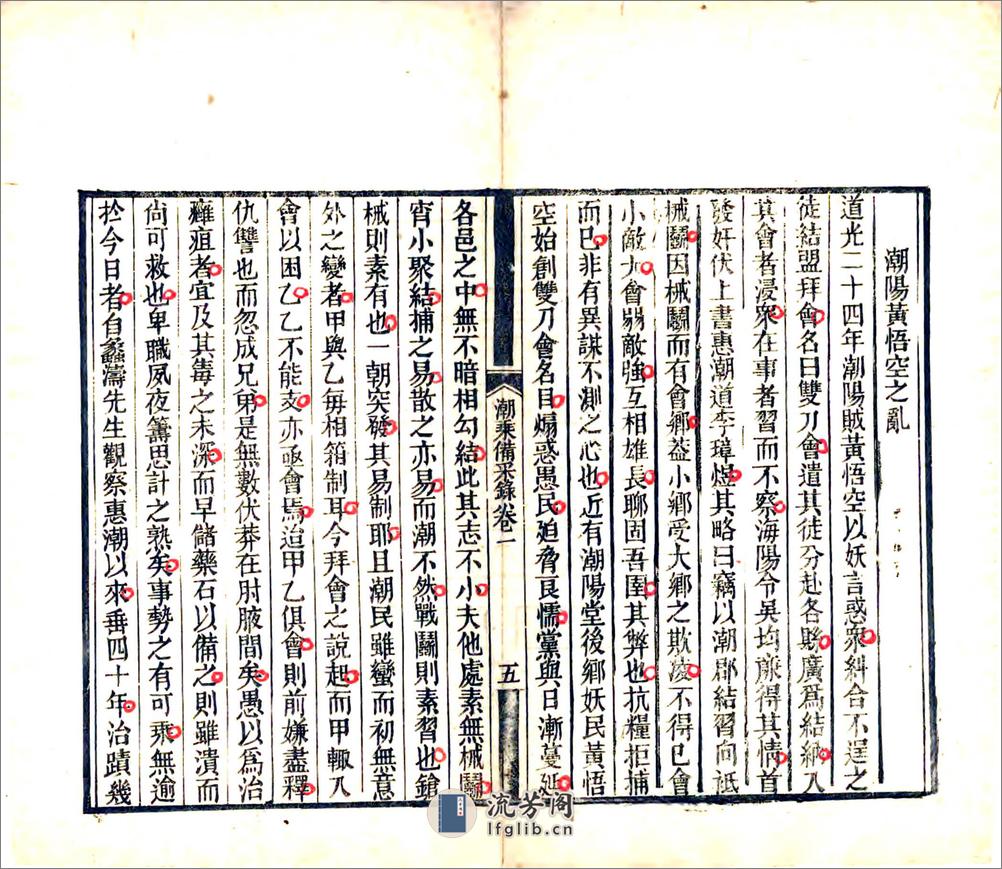 潮陽黃悟空之亂
道光二十四年潮陽賊黃悟空以妖言惑衆糾合不逞之
徒結盟拜會名曰雙刀會遣其徒分赴各縣廣爲結納入
其會者浸衆在事者習而不察海陽令吳均廉得其情首
發奸伏上書惠潮道李璋煜其略曰竊以潮郡結習向祇
械鬭因械鬭而有會鄉葢小鄉受大鄉之欺凌不得已會
小敵大會弱敵強互相雄長聊固吾圉其弊也抗糧拒捕
而已非有異謀不測之心也近有潮陽堂後鄉妖民黃悟
空始創雙刀會名目煽惑愚民廹脅良懦黨與日漸蔓延
潮乘備采錄卷二
五
各邑之中無不暗相勾結此其志不小夫他處素無械鬭
宵小聚結捕之易散之亦易而潮不然戰鬭則素習也鎗
械則素有也一朝突發其易制耶且潮民雖蠻而初無意
外之變者甲與乙每相箝制耳今拜會之說起而甲輙入
會以困乙乙不能支亦亟會焉迨甲乙俱會則前嫌盡釋
仇讐也而忽成兄弟是無數伏莽在肘腋間矣愚以爲治
癰疽者宜及其毒之未深而早儲藥石以備之則雖潰而
尙可救也卑職夙夜籌思計之熟矣事勢之有可乘無逾
於今日者自蠡濤先生觀察惠潮以來垂四十年治蹟幾
流芳阁
lfglib.cn